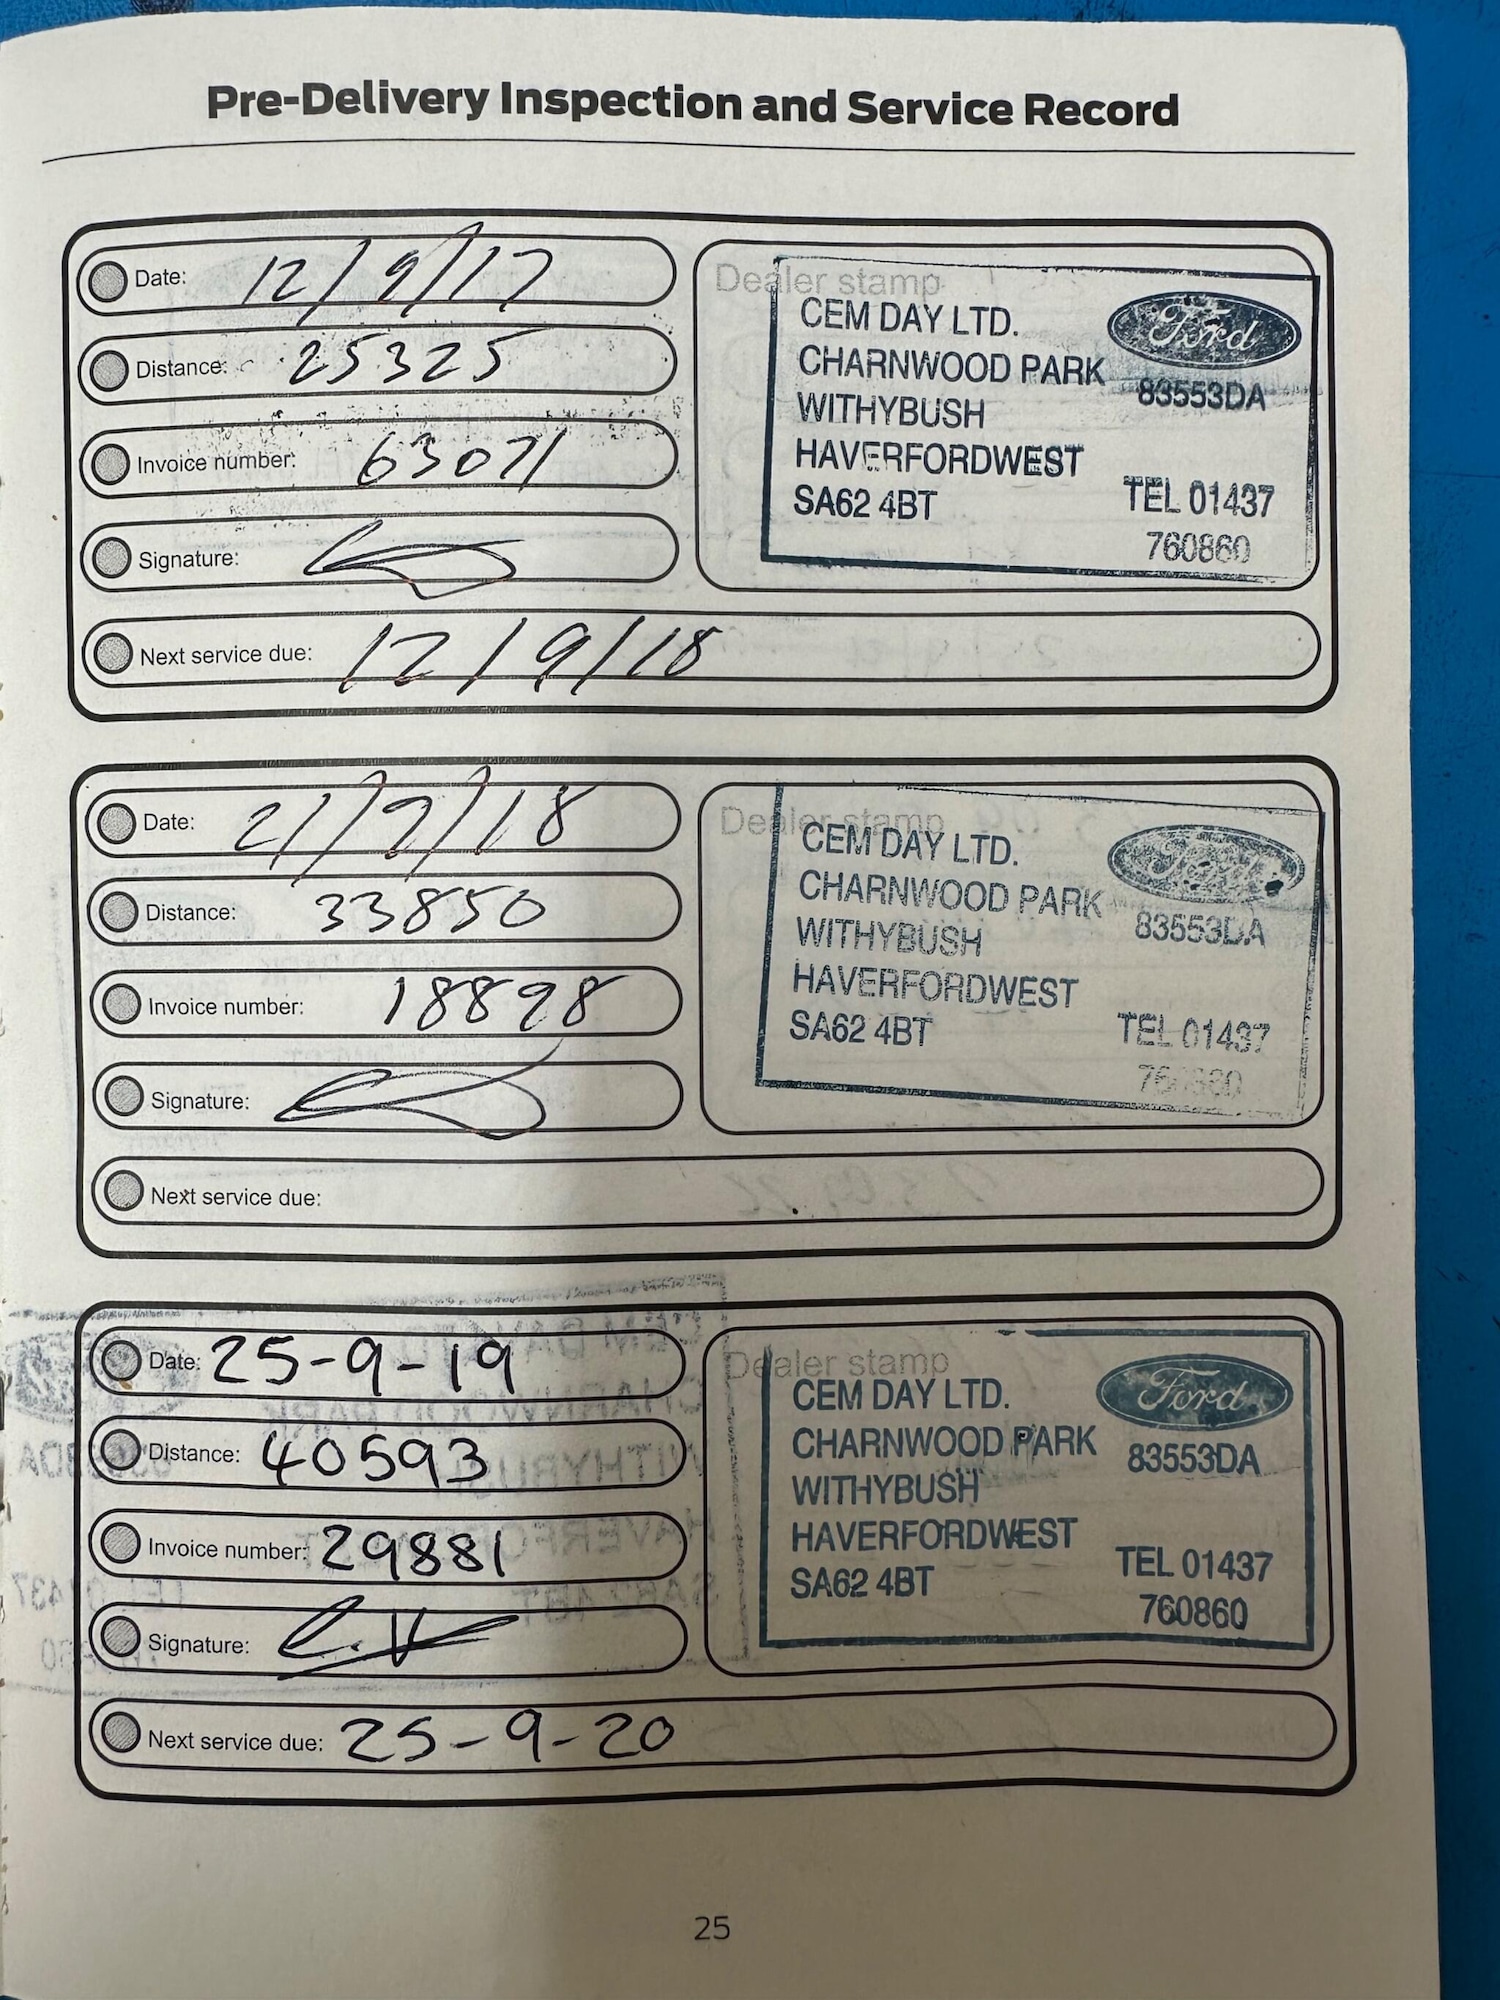 Pre-Delivery Inspection and Service Record
Date: 12/9/17
Distance: 25325
Invoice number: 63071
Signature:
Next service due: 12/9/18
Dealer stamp
CEM DAY LTD.
CHARNWOOD PARK
WITHYBUSH
HAVERFORDWEST
SA62 4BT
Ford
83553DA
TEL 01437
760860
Date: 21/9/18
Distance: 33850
Invoice number: 18898
Signature:
Next service due:
Dealer stamp
CEM DAY LTD.
CHARNWOOD PARK
WITHYBUSH
HAVERFORDWEST
SA62 4BT
Ford
83553DA
TEL 01437
Date: 25-9-19
Distance: 40593
Invoice number: 29881
Signature:
Next service due: 25-9-20
Dealer stamp
CEM DAY LTD.
CHARNWOOD PARK
WITHYBUSH
HAVERFORDWEST
SA62 4BT
Ford
83553DA
TEL 01437
760860
25